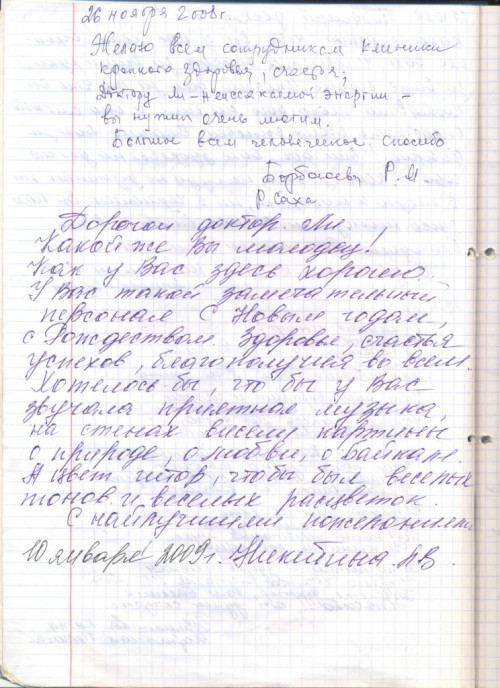 26 ноября 2008г.
Желаю всем сотрудникам клиники
крепкого здоровья, счастья,
Доктору Ли – неиссякаемой энергии –
вы нужны очень многим.
Большое всем человеческое спасибо
Р. М
Р. Саха.
Дорогой доктор Ли,
Какой же Вы молодец!
Как у Вас здесь хорошо
У Вас такой замечательный
персонал С Новым годом,
с Рождеством. Здоровье, счастья
успехов, благополучия во всем.
Хотелось бы, что бы у Вас
звучала приятная музыка,
на стенах висели картины
о природе, о любви, о Байкале.
А цвет штор, чтобы был веселых
тонов и веселых расцветок.
С наилучшими пожеланиями
10 января 2009г. Никитина. А В.